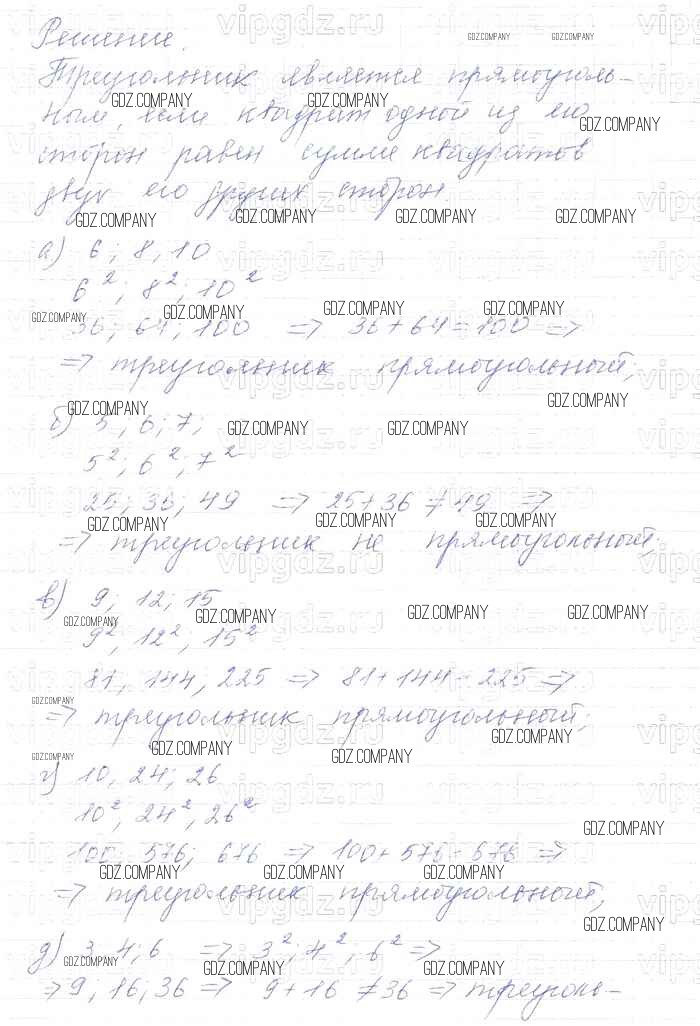 Решение.
Треугольник является прямоуголь-
ным, если квадрат одной из его
сторон равен сумме квадратов
двух его других сторон.
а) 6; 8, 10
6²; 8²; 10²
36; 64; 100 => 36+64=100 =>
=> треугольник прямоугольный;
б) 5; 6; 7;
5²; 6²; 7²
25; 36; 49 => 25+36≠49 =>
=> треугольник не прямоугольный;
в) 9; 12; 15
9², 12²; 15²
81, 144, 225 => 81+144=225 =>
=> треугольник прямоугольный;
г) 10, 24; 26
10²; 24²; 26²
100; 576; 676 => 100+576=676 =>
=> треугольник прямоугольный;
д) 3; 4; 6 => 3²; 4²; 6² =>
=> 9; 16; 36 => 9+16≠36 => треуголь-